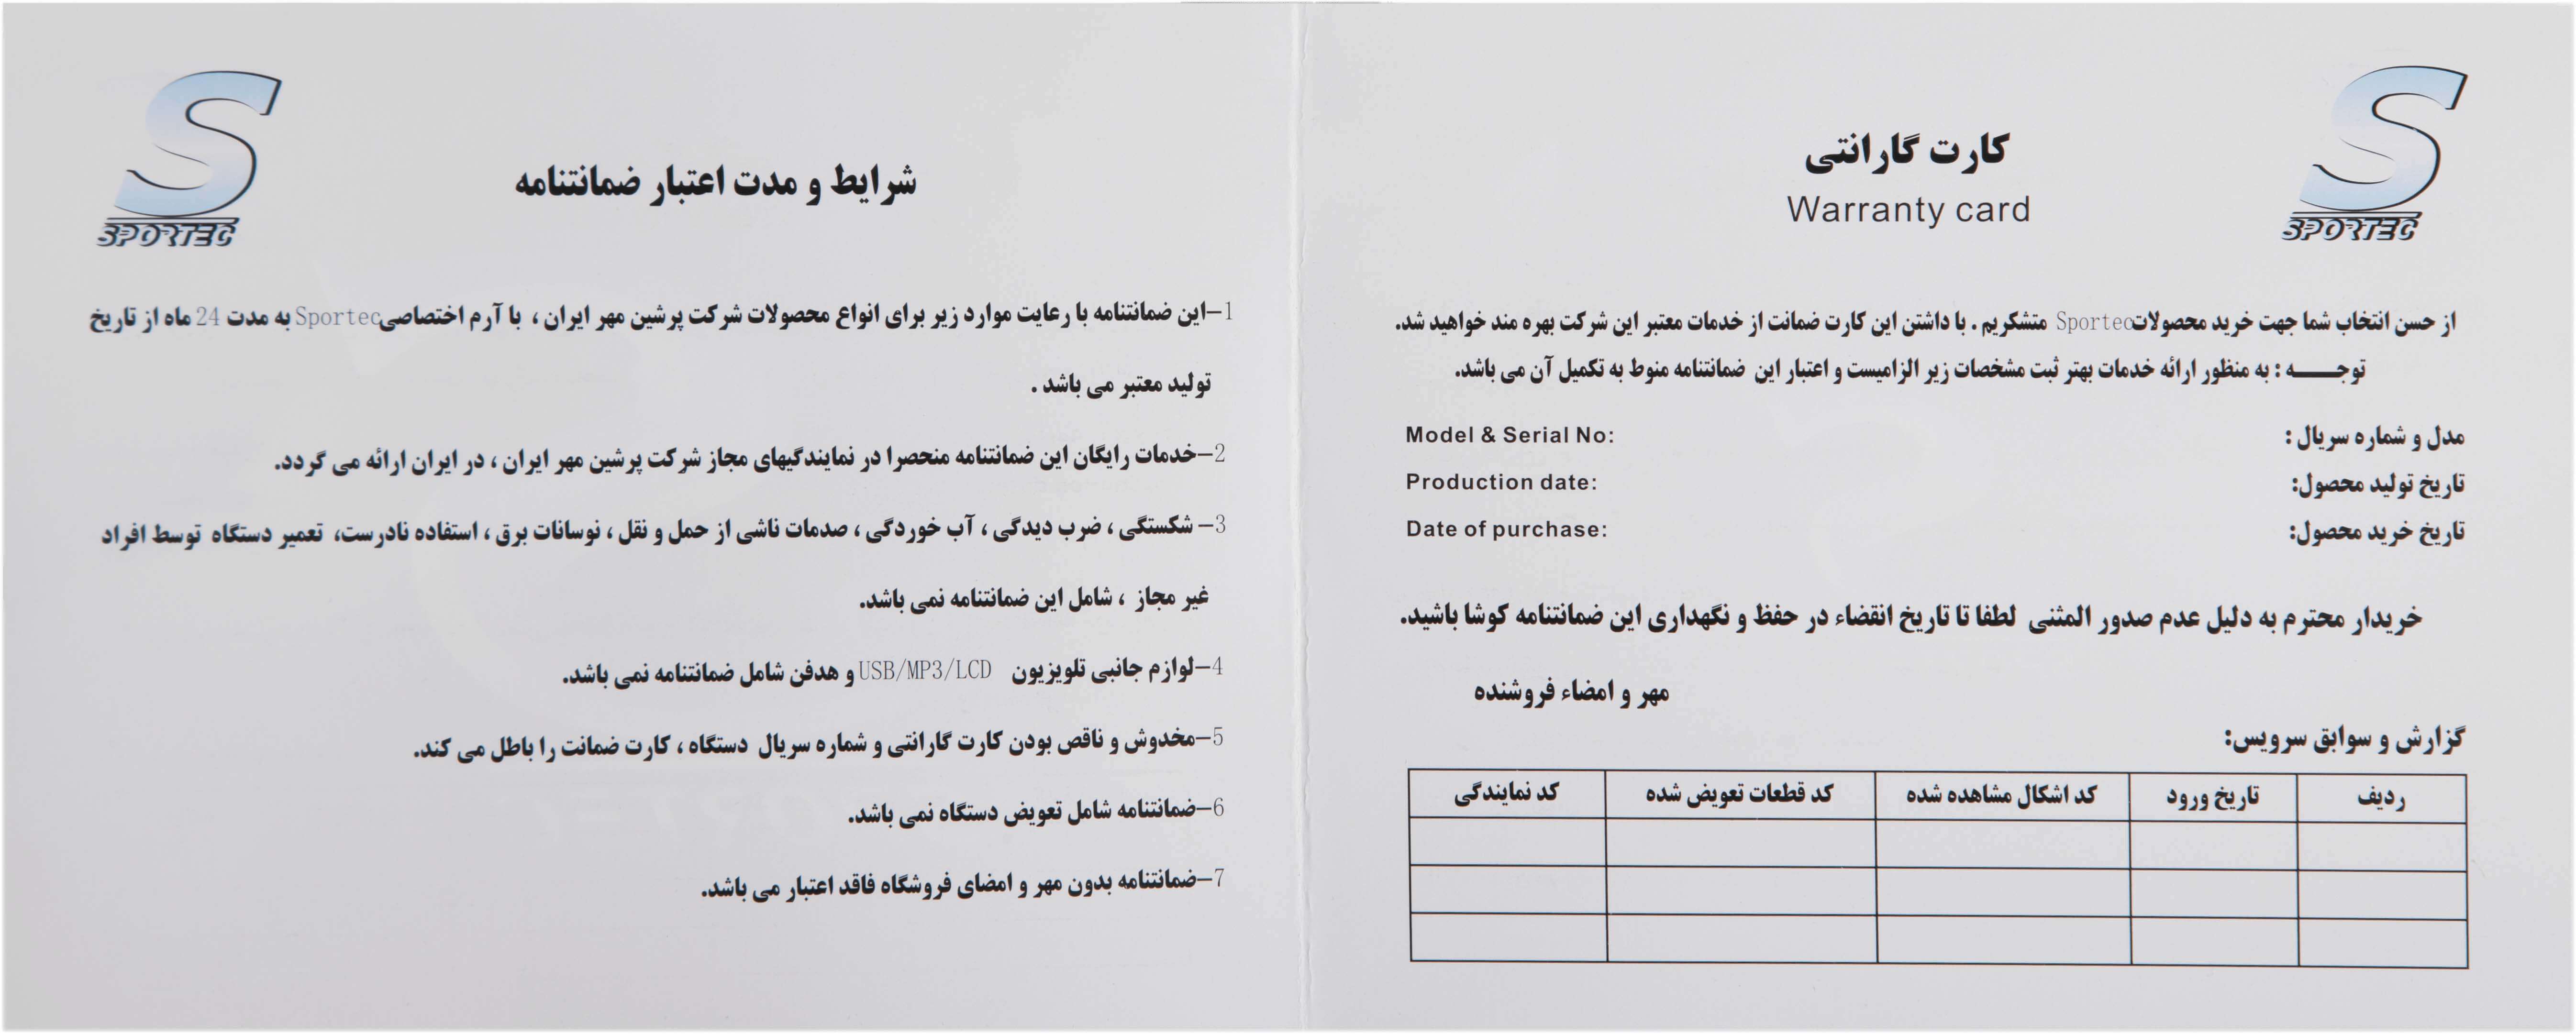 SPORTEC
کارت گارانتی
Warranty card
از حسن انتخاب شما جهت خرید محصولات Sportec متشکریم . با داشتن این کارت ضمانت از خدمات معتبر این شرکت بهره مند خواهید شد.
توجـــــه : به منظور ارائه خدمات بهتر ثبت مشخصات زیر الزامیست و اعتبار این ضمانتنامه منوط به تکمیل آن می باشد.
مدل و شماره سریال : Model & Serial No:
تاریخ تولید محصول: Production date:
تاریخ خرید محصول: Date of purchase:
خریدار محترم به دلیل عدم صدور المثنی لطفا تا تاریخ انقضاء در حفظ و نگهداری این ضمانتنامه کوشا باشید.
مهر و امضاء فروشنده
گزارش و سوابق سرویس:
ردیف تاریخ ورود کد اشکال مشاهده شده کد قطعات تعویض شده کد نمایندگی
SPORTEC
شرایط و مدت اعتبار ضمانتنامه
1-این ضمانتنامه با رعایت موارد زیر برای انواع محصولات شرکت پرشین مهر ایران ، با آرم اختصاصی Sportec به مدت 24 ماه از تاریخ
تولید معتبر می باشد .
2-خدمات رایگان این ضمانتنامه منحصرا در نمایندگیهای مجاز شرکت پرشین مهر ایران ، در ایران ارائه می گردد.
3- شکستگی ، ضرب دیدگی ، آب خوردگی ، صدمات ناشی از حمل و نقل ، نوسانات برق ، استفاده نادرست، تعمیر دستگاه توسط افراد
غیر مجاز ، شامل این ضمانتنامه نمی باشد.
4-لوازم جانبی تلویزیون USB/MP3/LCD و هدفن شامل ضمانتنامه نمی باشد.
5-مخدوش و ناقص بودن کارت گارانتی و شماره سریال دستگاه ، کارت ضمانت را باطل می کند.
6-ضمانتنامه شامل تعویض دستگاه نمی باشد.
7-ضمانتنامه بدون مهر و امضای فروشگاه فاقد اعتبار می باشد.